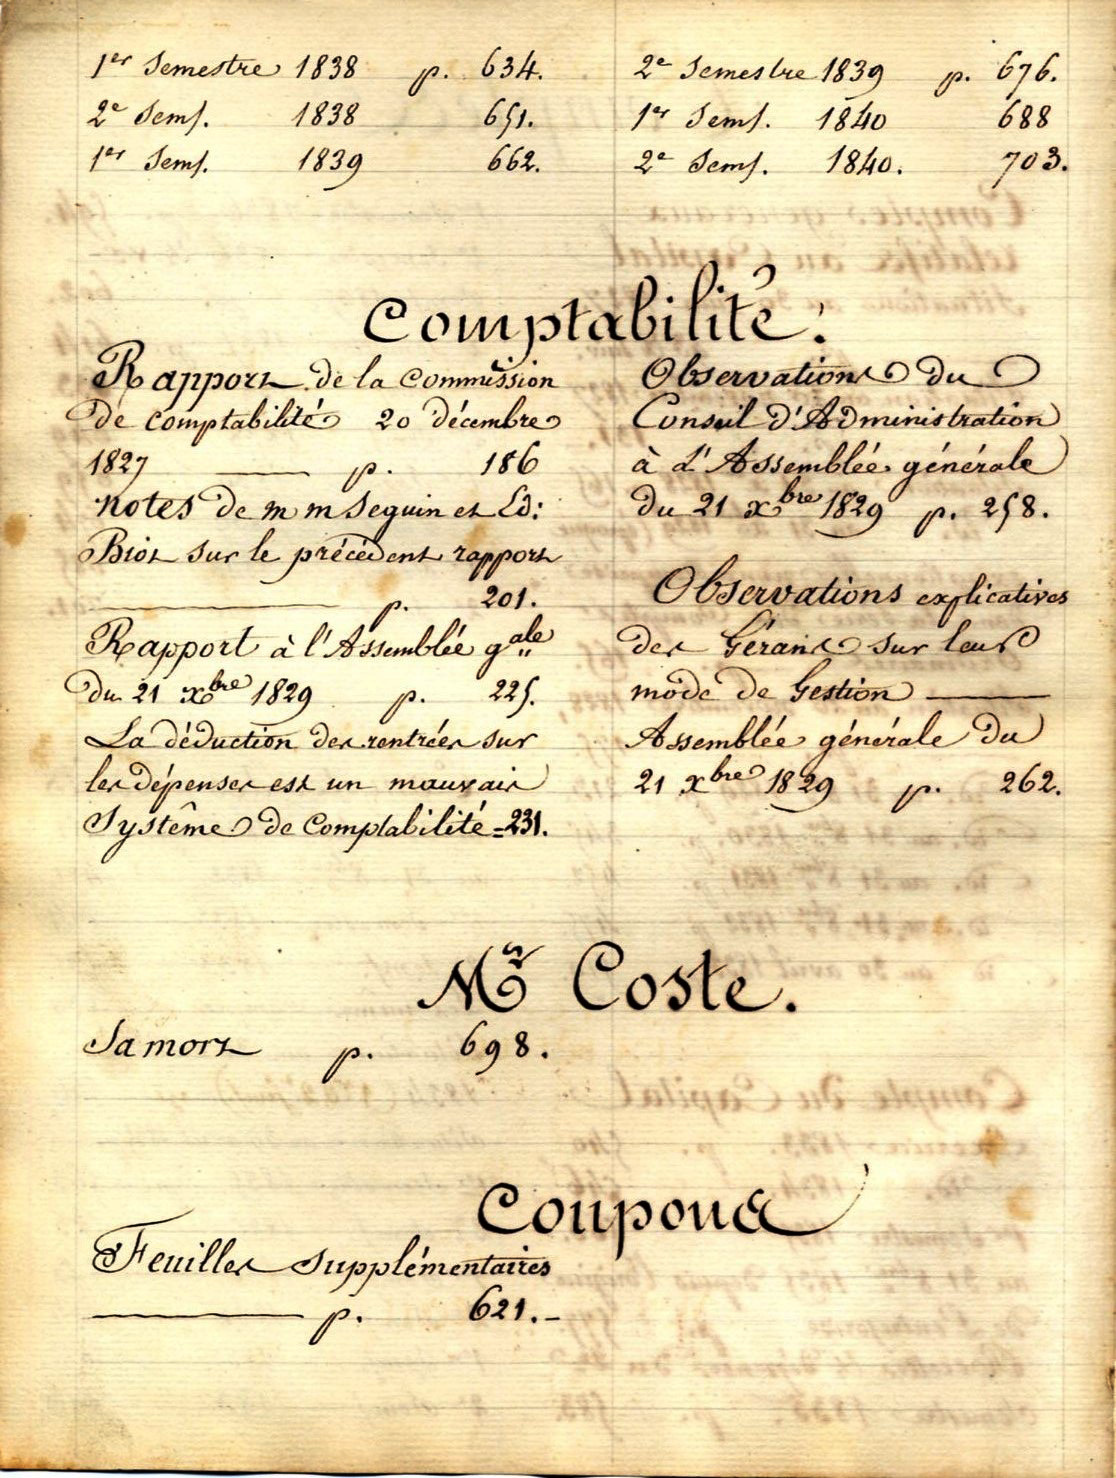 1er Semestre 1838 p. 634.
2e Sems. 1838 651.
1er Sems. 1839 662.
2e Semestre 1839 p. 676.
1er Sems. 1840 688
2e Sems. 1840. 703.
Comptabilité.
Rapport de la Commission
de comptabilité 20 décembre
1827 p. 186
notes de m m Seguin et Ed:
Biot sur le précédent rapport
p. 201.
Rapport à l'Assemblée gale
du 21 xbre 1829 p. 225.
La déduction des rentrées sur
les dépenses est un mauvais
Systême de Comptabilité = 231.
Observations du
Conseil d'Administration
à L'Assemblée générale
du 21 xbre 1829 p. 258.
Observations explicatives
des Gérans sur leur
mode de Gestion
Assemblée générale du
21 xbre 1829 p. 262.
Mr Coste.
Sa mort p. 698.
Coupons
Feuilles Supplémentaires
p. 621.-